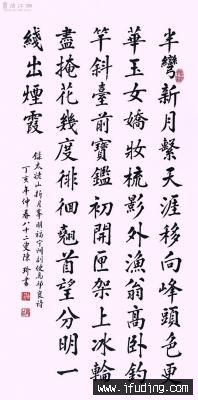 半彎新月繫天涯移向峰頭色更
華玉女嬌妝梳影外漁翁高臥釣
竿斜臺前寶鑑初開匣架上冰輪
盡掩花幾度徘徊翹首望分明一
綫出煙霞
錄太姥山新月峯明福寧州別使馬邦良詩
丁亥年仲春八十二叟陳珍書
www.jfuding.com